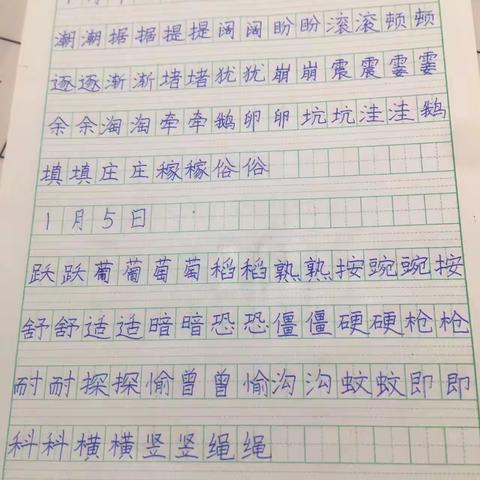 潮潮据据提提阔阔盼盼滚滚顿顿
逐逐渐渐堵堵犹犹崩崩震震霎霎
余余淘淘牵牵鹅卵卵坑坑洼洼鹅
填填庄庄稼稼俗俗
1月5日
跃跃葡葡萄萄稻稻熟熟按豌豌按
舒舒适适暗暗恐恐僵僵硬硬枪枪
耐耐探探愉曾曾愉沟沟蚊蚊即即
科科横横竖竖绳绳